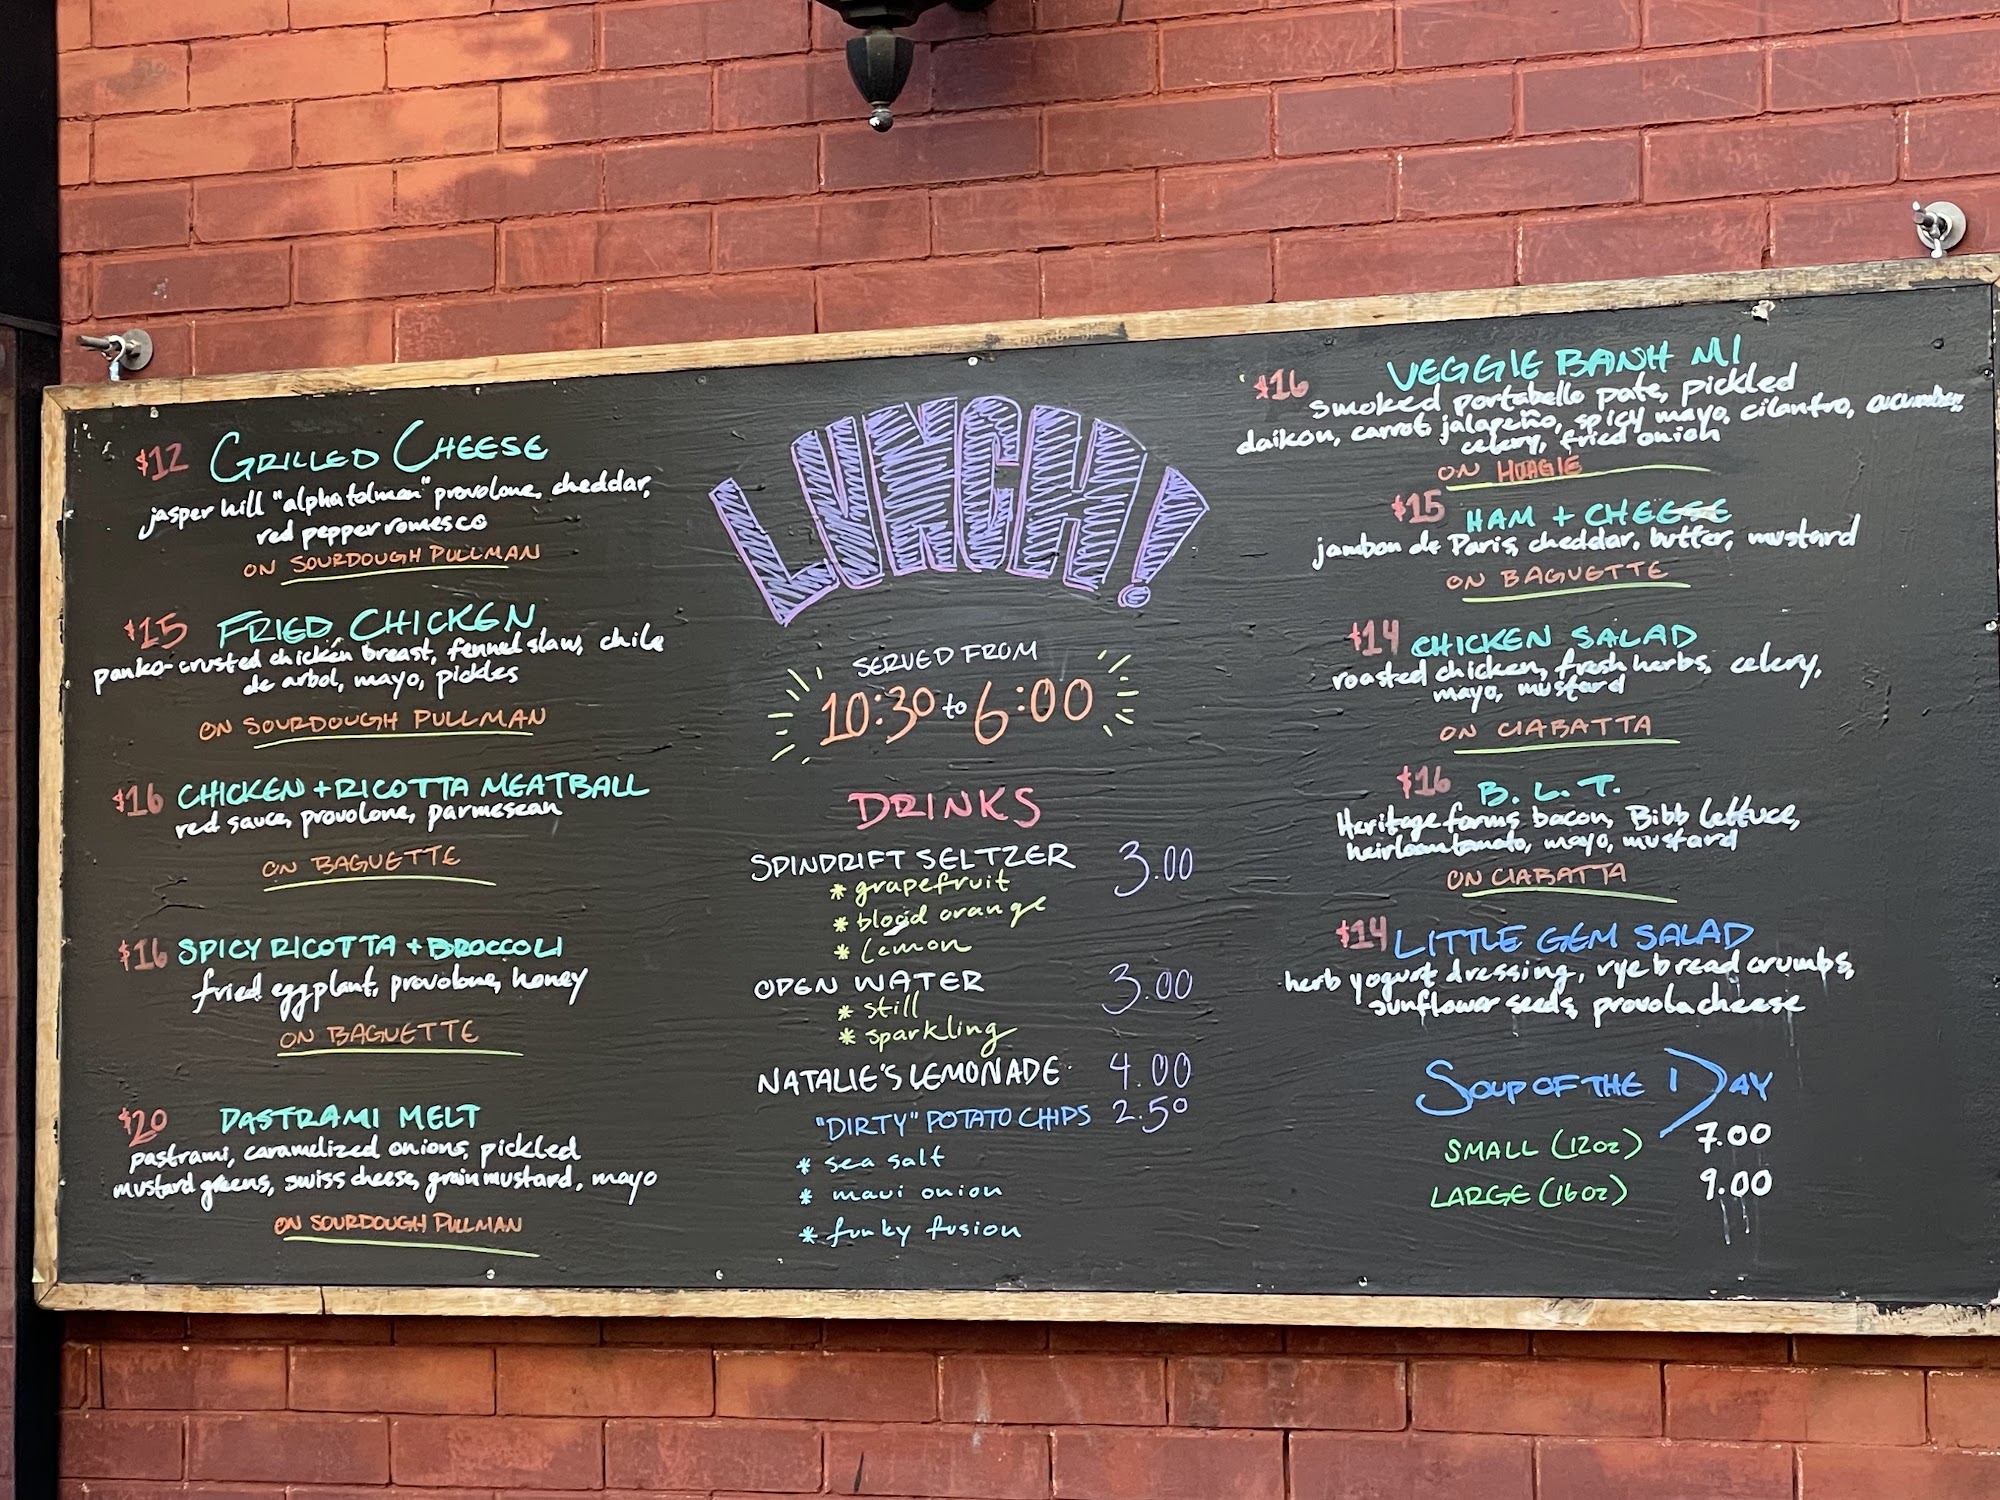 $12 GRILLED CHEESE
jasper hill "alpha tolman" provolone, cheddar,
red pepper romesco
ON SOURDOUGH PULLMAN
$15 FRIED CHICKEN
panko-crusted chicken breast, fennel slaw, chile
de arbol, mayo, pickles
ON SOURDOUGH PULLMAN
$16 CHICKEN + RICOTTA MEATBALL
red sauce, provolone, parmesean
ON BAGUETTE
$16 SPICY RICOTTA + BROCCOLI
fried eggplant, provolone, honey
ON BAGUETTE
$20 PASTRAMI MELT
pastrami, caramelized onions, pickled
mustard greens, swiss cheese, grain mustard, mayo
ON SOURDOUGH PULLMAN
LUNCH!
SERVED FROM
10:30 to 6:00
DRINKS
SPINDRIFT SELTZER 3.00
* grapefruit
* blood orange
* lemon
OPEN WATER 3.00
* still
* sparkling
NATALIE'S LEMONADE 4.00
"DIRTY" POTATO CHIPS 2.50
* sea salt
* maui onion
* funky fusion
$16 VEGGIE BANH MI
smoked portabello pate, pickled
daikon, carrot, jalapeño, spicy mayo, cilantro, cucumber,
celery, fried onion
ON HOAGIE
$15 HAM + CHEESE
jambon de Paris, cheddar, butter, mustard
ON BAGUETTE
$14 CHICKEN SALAD
roasted chicken, fresh herbs, celery,
mayo, mustard
ON CIABATTA
$16 B.L.T.
Heritage farms bacon, Bibb lettuce,
heirloom tomato, mayo, mustard
ON CIABATTA
$14 LITTLE GEM SALAD
herb yogurt dressing, rye bread crumbs,
sunflower seeds, provola cheese
SOUP OF THE DAY
SMALL (12oz) 7.00
LARGE (16oz) 9.00